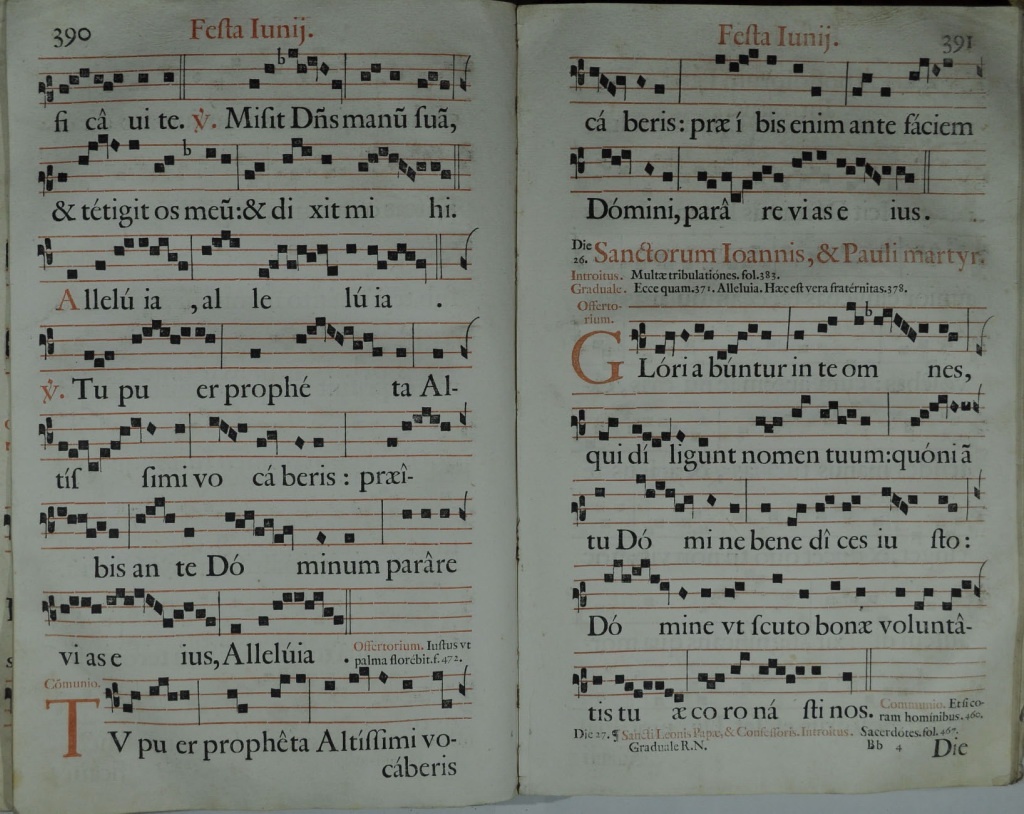 390
Festa Iunij.
fi câ ui te. ℣. Misit Dñs manũ suã,
& tétigit os meũ:& di xit mi hi.
Allelú ia , al le lú ia .
℣. Tu pu er prophé ta Al-
tís simi vo cá beris : præî-
bis an te Dó minum parâre
vi as e ius, Allelúia .
Offertorium. Iustus vt
palma florébit.f.472.
Cõmunio.
TV pu er prophêta Altíssimi vo-
cáberis
Festa Iunij.
391
cá beris: præ í bis enim ante fáciem
Dómini, parâ re vi as e ius.
Die
26. Sanctorum Ioannis, & Pauli martyr.
Introitus. Multæ tribulatiónes. fol.383.
Graduale. Ecce quam.371. Alleluia. Hæc est vera fratérnitas.378.
Offerto-
rium.
GLóri a búntur in te om nes,
qui dí ligunt nomen tuum:quóni ã
tu Dó mi ne bene dî ces iu sto:
Dó mine vt scuto bonæ voluntâ-
tis tu æ co ro ná sti nos.
Communio. Et si co-
ram homínibus.460.
Die 27. ¶ Sancti Leonis Papæ, & Confessoris. Introitus. Sacerdótes.fol.467.
Graduale R.N.
Bb 4
Die